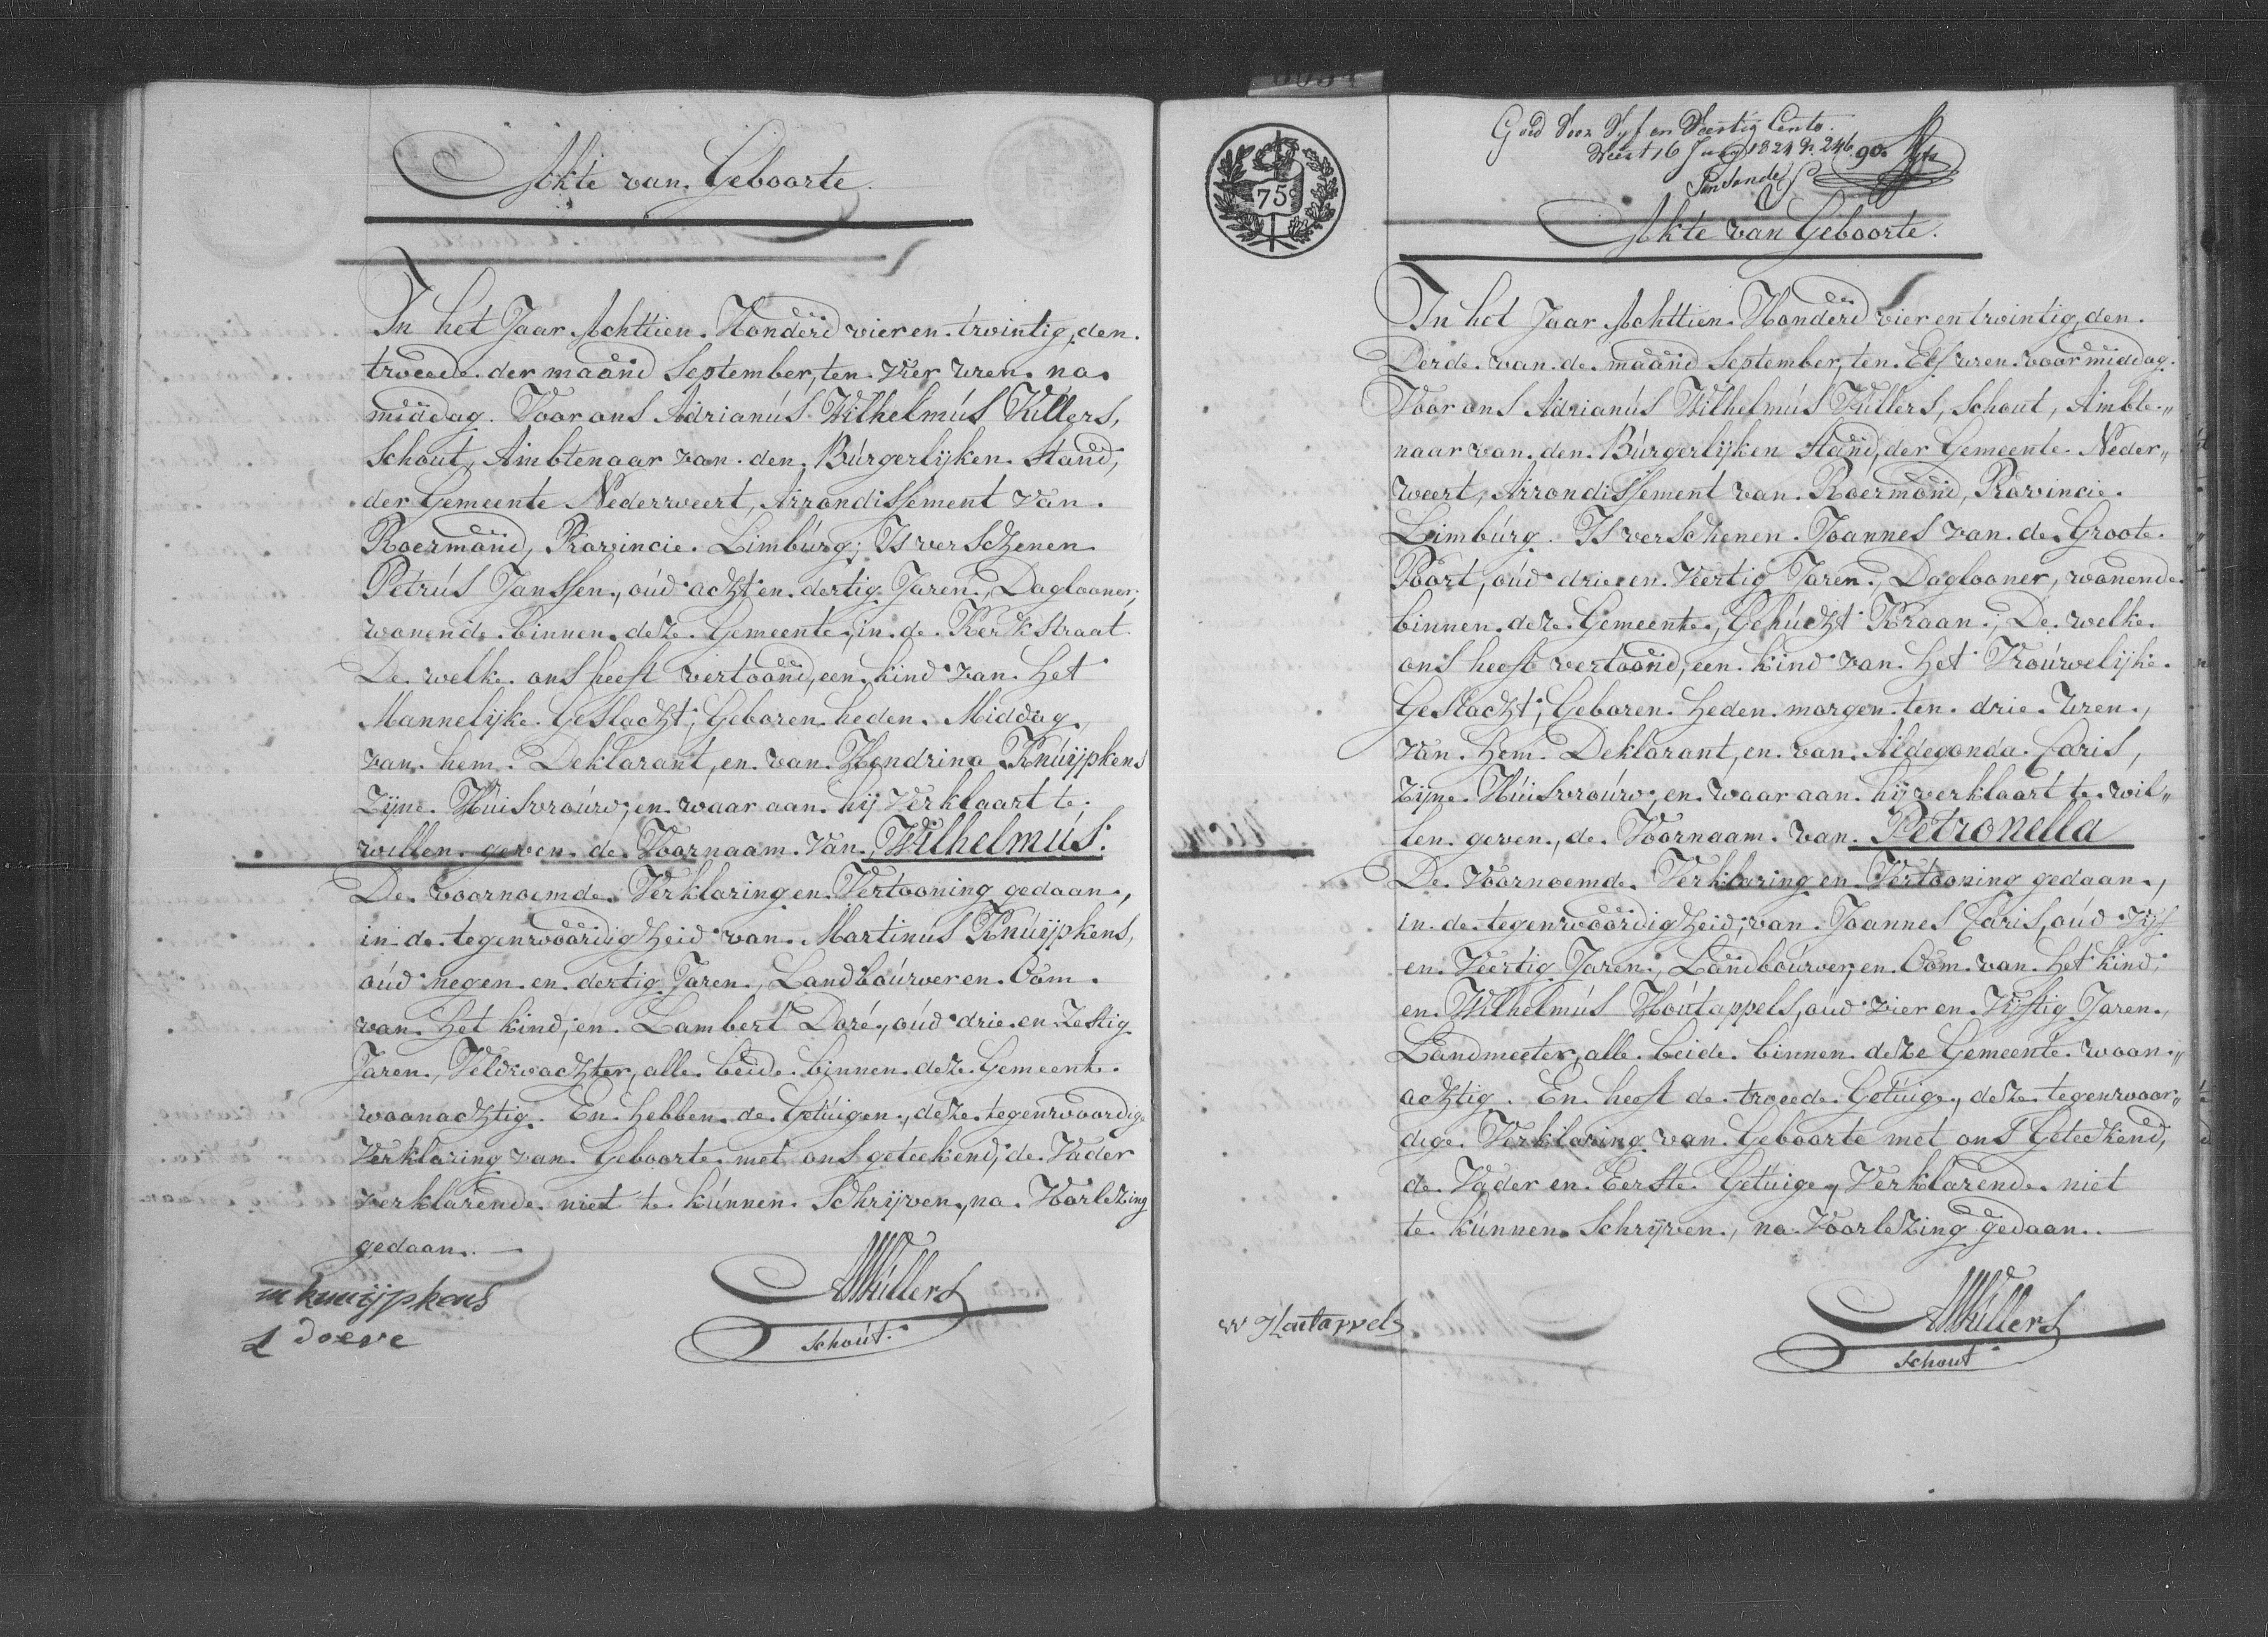 Akte van Geboorte.
In het Jaar Achttien Honderd vier en twintig, den
tweede der maand September, ten vier uren na
middag. Voor ons Adrianús Wilhelmús Vúllers,
Schout, Ambtenaar van den Búrgerlijken Stand,
der Gemeente Nederweert, Arrondissement van
Roermond, Provincie Limbúrg; Is verschenen
Petrús Janssen, oúd acht en dertig Jaren, Daglooner,
wonende binnen deze Gemeente, in de Kerkstraat
De welke ons heeft vertoond, een kind van het
Mannelijke Geslacht, Geboren heden Middag,
van hem Deklarant, en van Hendrina Knúijpkens
zijne Húisvroúw, en waar aan hij Verklaart te
willen geven de Voornaam van Wilhelmús.
De voornoemde Verklaring en Vertooning gedaan,
in de tegenwoordigheid van Martinús Knúijpkens,
oúd negen en dertig Jaren, Landboúwer en Oom
van het kind, en Lambert Doré, oúd drie en Zestig
Jaren, Veldwachter, alle beide binnen deze Gemeente
woonachtig. En hebben de Getúigen, deze tegenwoordige
Verklaring van Geboorte met ons geteekend, de Vader
verklarende niet te kúnnen Schrijven, na Voorlezing
gedaan.
m knuijpkens
L doere
AWVúllers
Schoút.
75c
Goed voor Vyf en Veertig Cents.
Weert 16 1824
Akte van Geboorte.
In het Jaar Achttien Honderd vier en twintig, den
Derde van de maand September, ten Elf uren voormiddag.
Voor ons Adrianús Wilhelmús Vúllers, Schout, Ambte„
naar van den Búrgerlijken Stand, der Gemeente Neder„
weert, Arrondissement van Roermond, Provincie
Limbúrg. Is verschenen Joannes van de Groote
Poort, oúd drie en Veertig Jaren, Daglooner, wonende
binnen deze Gemeente, Gehúcht Kraan, De welke
ons heeft vertoond, een kind van het Vroúwelijke
Geslacht, Geboren heden morgen ten drie Uren,
van hem Deklarant, en van Aldegonda Caris,
zijne Húisvroúw, en waar aan hij verklaart te wil„
len geven, de Voornaam van Petronella
De Voornoemde Verklaring en Vertooning gedaan,
in de tegenwoordigheid, van Joannes Caris, oúd vijf
en Veertig Jaren, Landboúwer, en Oom van het kind,
en Wilhelmús Hoútappels, oúd vier en Vijftig Jaren,
Landmeeter, alle beide binnen deze Gemeente woon„
achtig. En heeft de tweede Getúige, deze tegenwoor„
dige Verklaring van Geboorte met ons Geteekend,
de Vader en Eerste Getuige, Verklarende niet
te kúnnen Schrijven, na Voorlezing gedaan.
W Hautappels
AWVúllers
Schout